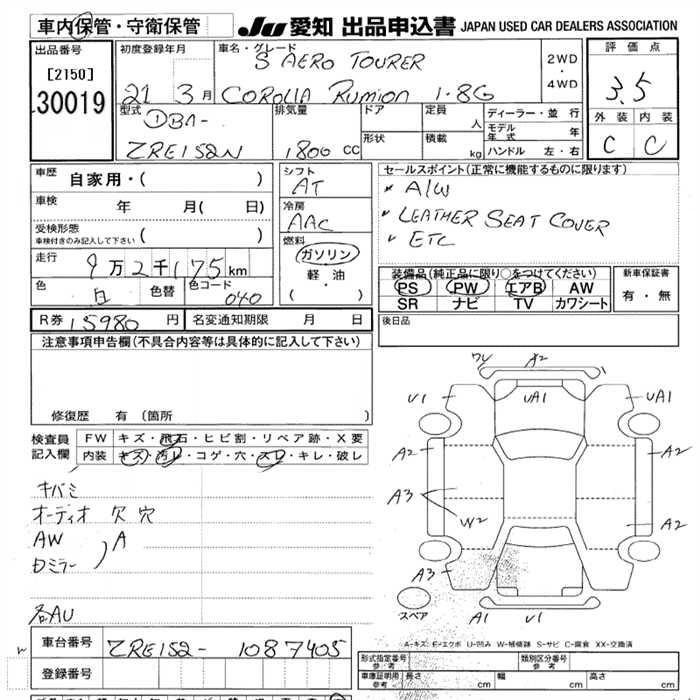 車内保管・守衛保管 JU 愛知 出品申込書 JAPAN USED CAR DEALERS ASSOCIATION
出品番号 初度登録年月 車名・グレード 評価点
[2150] S AERO TOURER 2WD
・
30019 21 3月 COROLLA RUMION 1.8G 4WD 3.5
型式 排気量 ドア 定員 人 ディーラー・並行 外装 内装
DBA- モデル年式 年 C C
ZRE152N 1800 cc 形状 積載 kg ハンドル 左・右
車歴 自家用・( ) シフト セールスポイント(正常に機能するものに限ります)
AT A/W
車検 年 月( 日) 冷房 LEATHER SEAT COVER
受検形態 ( ) AAC ETC
車検付きのみ記入して下さい 燃料
走行 9万2千175km ガソリン 装備品(純正品に限り○をつけてください) 新車保証書
色 白 色替 色コード 040 軽油 PS PW エアB AW 有・無
( ・ ) SR ナビ TV カワシート
R券 15980 円 名変通知期限 月 日 後日品
注意事項申告欄(不具合内容等は具体的に記入して下さい)
修復歴 有 (箇所 )
検査員 FW キズ・飛石・ヒビ割・リペア跡・X要
記入欄 内装 キズ・汚レ・コゲ・穴・スレ・キレ・破レ
キバミ
オーディオ欠穴
AW
ロミラー ) A
名AU
ワレ A2
U1 UA1 UA1
A2 A2
A3
W2 A2
A3
スペア A1 U1
A-キズ E-エクボ U-凹み W-補修跡 S-サビ C-腐食 XX-交換済
車台番号 ZRE152- 1087405
登録番号
形式指定番号 参考 類別区分番号 参考
車庫証明用 参考 長さ cm 幅 cm 高さ cm